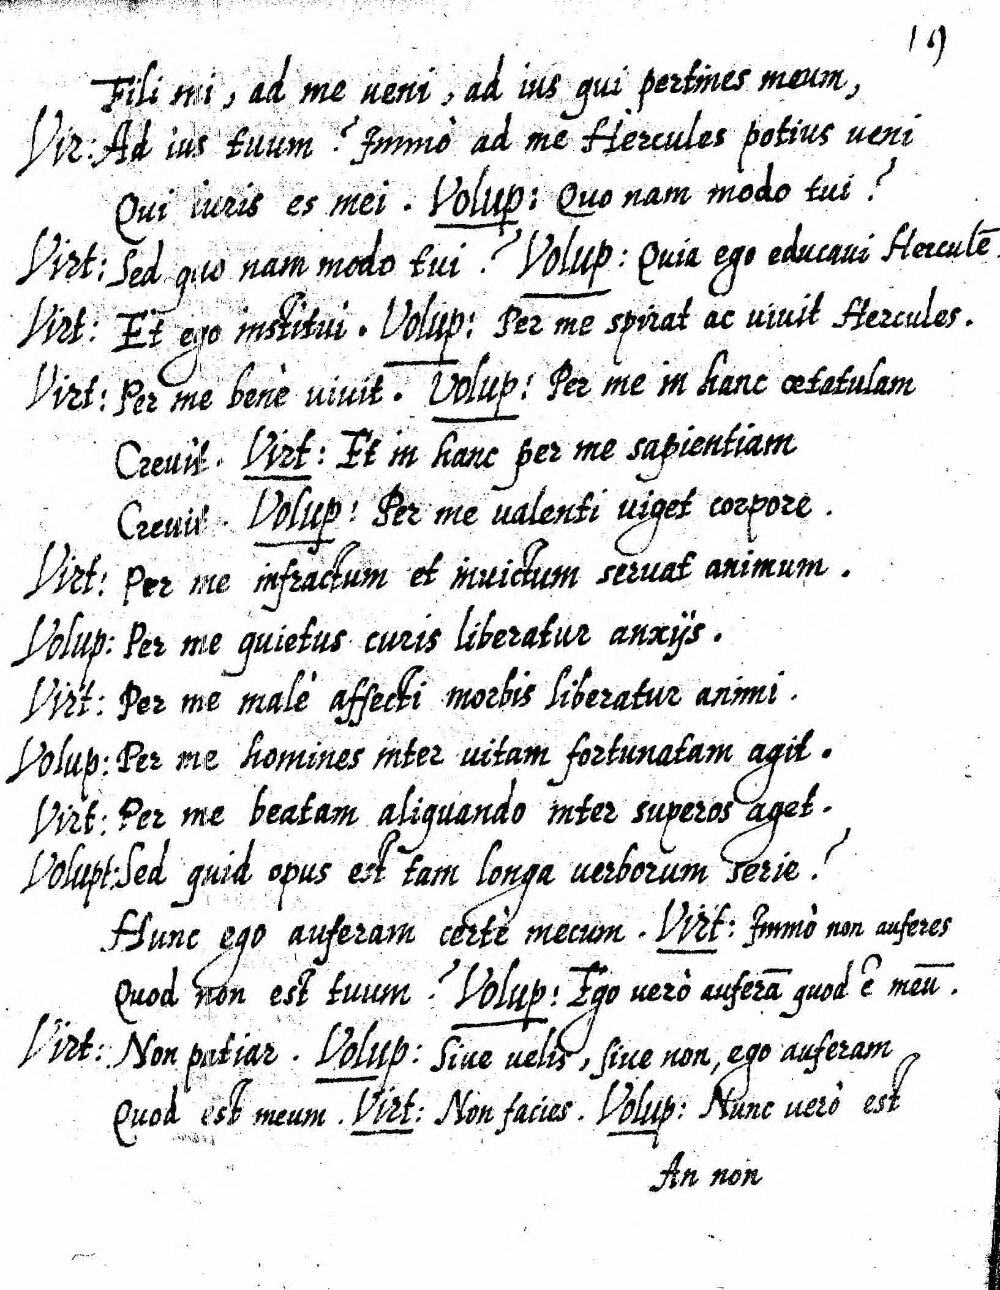 19
Fili mi, ad me ueni, ad ius qui pertines meum,
Vir: Ad ius tuum? Immò ad me Hercules potius ueni
Qui iuris es mei. Volup: Quo nam modo tui?
Virt: Sed quo nam modo tui? Volup: Quia ego educaui Herculē.
Virt: Et ego institui. Volup: Per me spirat ac uiuit Hercules.
Virt: Per me benè uiuit. Volup: Per me in hanc ætatulam
Creuit. Virt: Et in hanc per me sapientiam
Creuit. Volup: Per me ualenti uiget corpore.
Virt: Per me infractum et inuictum seruat animum.
Volup: Per me quietus curis liberatur anxijs.
Virt: Per me malè affecti morbis liberatur animi.
Volup: Per me homines inter uitam fortunatam agit.
Virt: Per me beatam aliquando inter superos aget.
Volupt: Sed quid opus est tam longa uerborum serie?
Hunc ego auferam certè mecum. Virt: Immò non auferes
Quod non est tuum? Volup: Ego uerò auferā quod ē meū.
Virt: Non patiar. Volup: Siue uelis, siue non, ego auferam
Quod est meum. Virt: Non facies. Volup: Nunc uerò est
An non